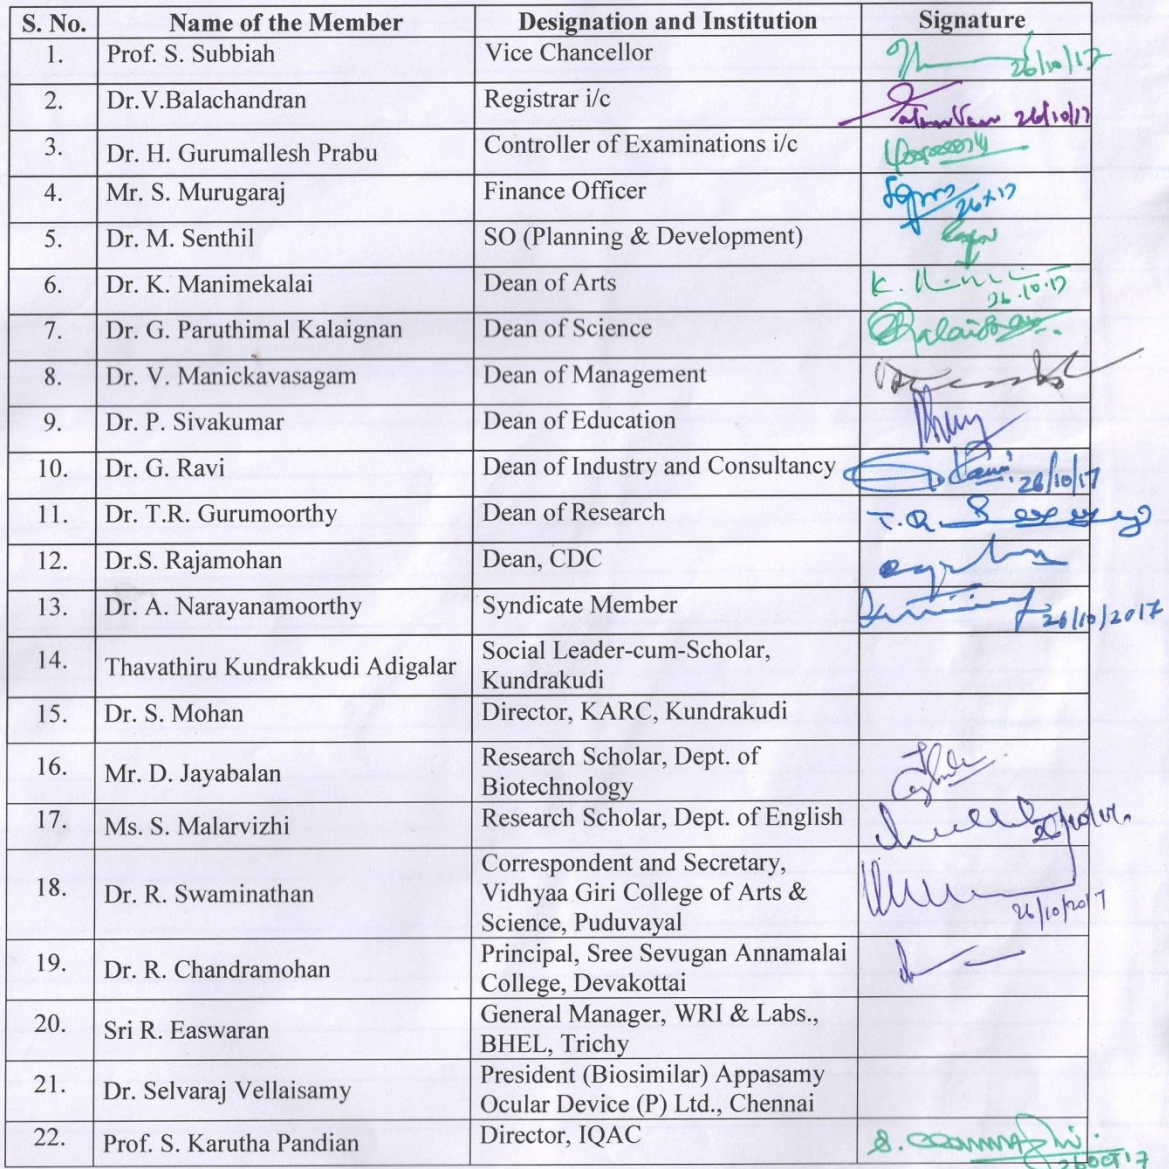 S. No. Name of the Member Designation and Institution Signature
1. Prof. S. Subbiah Vice Chancellor 26/10/17
2. Dr.V.Balachandran Registrar i/c 26/10/17
3. Dr. H. Gurumallesh Prabu Controller of Examinations i/c
4. Mr. S. Murugaraj Finance Officer
5. Dr. M. Senthil SO (Planning & Development)
6. Dr. K. Manimekalai Dean of Arts K. 26.10.17
7. Dr. G. Paruthimal Kalaignan Dean of Science
8. Dr. V. Manickavasagam Dean of Management
9. Dr. P. Sivakumar Dean of Education
10. Dr. G. Ravi Dean of Industry and Consultancy 26/10/17
11. Dr. T.R. Gurumoorthy Dean of Research T.R.
12. Dr.S. Rajamohan Dean, CDC
13. Dr. A. Narayanamoorthy Syndicate Member 26/10/2017
14. Thavathiru Kundrakkudi Adigalar Social Leader-cum-Scholar,
Kundrakudi
15. Dr. S. Mohan Director, KARC, Kundrakudi
16. Mr. D. Jayabalan Research Scholar, Dept. of
Biotechnology
17. Ms. S. Malarvizhi Research Scholar, Dept. of English
18. Dr. R. Swaminathan Correspondent and Secretary,
Vidhyaa Giri College of Arts &
Science, Puduvayal 26/10/2017
19. Dr. R. Chandramohan Principal, Sree Sevugan Annamalai
College, Devakottai
20. Sri R. Easwaran General Manager, WRI & Labs.,
BHEL, Trichy
21. Dr. Selvaraj Vellaisamy President (Biosimilar) Appasamy
Ocular Device (P) Ltd., Chennai
22. Prof. S. Karutha Pandian Director, IQAC